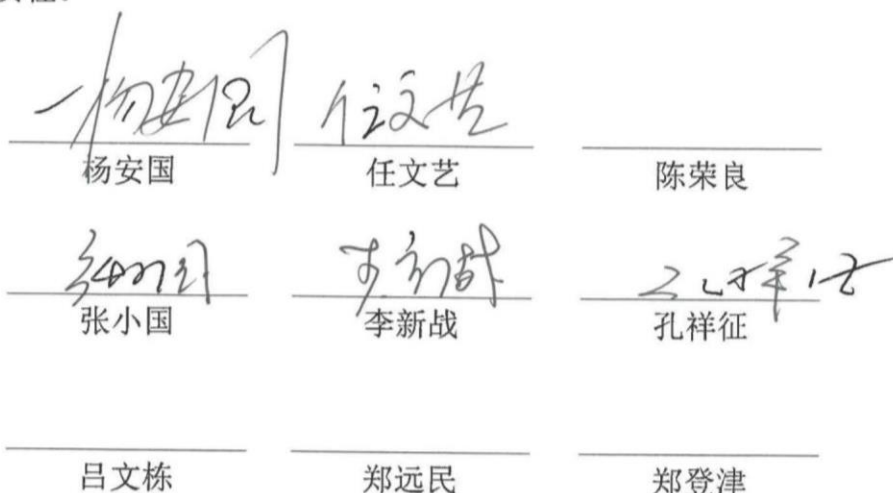 杨安国 任文艺
杨安国 任文艺 陈荣良
张小国 李新战 孔祥征
张小国 李新战 孔祥征
吕文栋 郑远民 郑登津